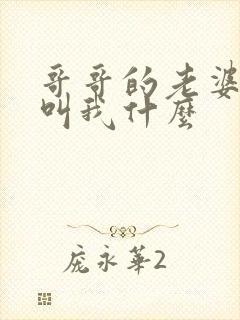 哥哥的老婆
叫我什麽
庞永華2